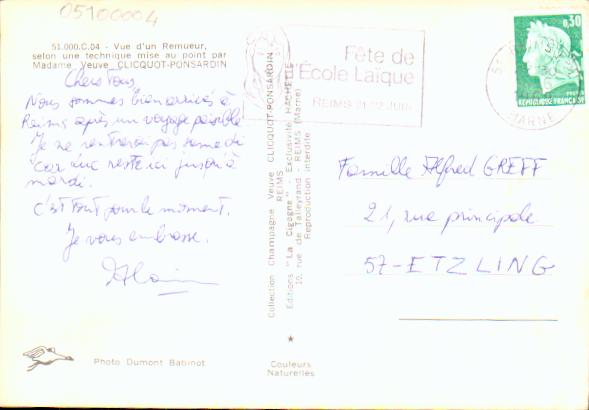 05100004
51.000.C.04 - Vue d'un Remueur,
selon une technique mise au point par
Madame Veuve CLICQUOT-PONSARDIN
Chers Tous
Nous sommes bien arrivés à
Reims après un voyage paisible
Je ne rentrerai pas samedi
car on reste ici jusqu'à
mardi.
C'est tout pour le moment.
Je vous embrasse.
Alain
Photo Dumont Babinot
Collection Champagne Veuve CLICQUOT-PONSARDIN
REIMS
Editions "La Cigogne" - Exclusivité HACHETTE
10, rue de Talleyrand - REIMS (Marne)
Reproduction interdite
Couleurs
Naturelles
Fête de
l'École Laïque
REIMS 21 22 JUIN
MARNE
0,30
REPUBLIQUE FRANCAISE
Famille Alfred GREFF
21, rue principale
57-ETZLING